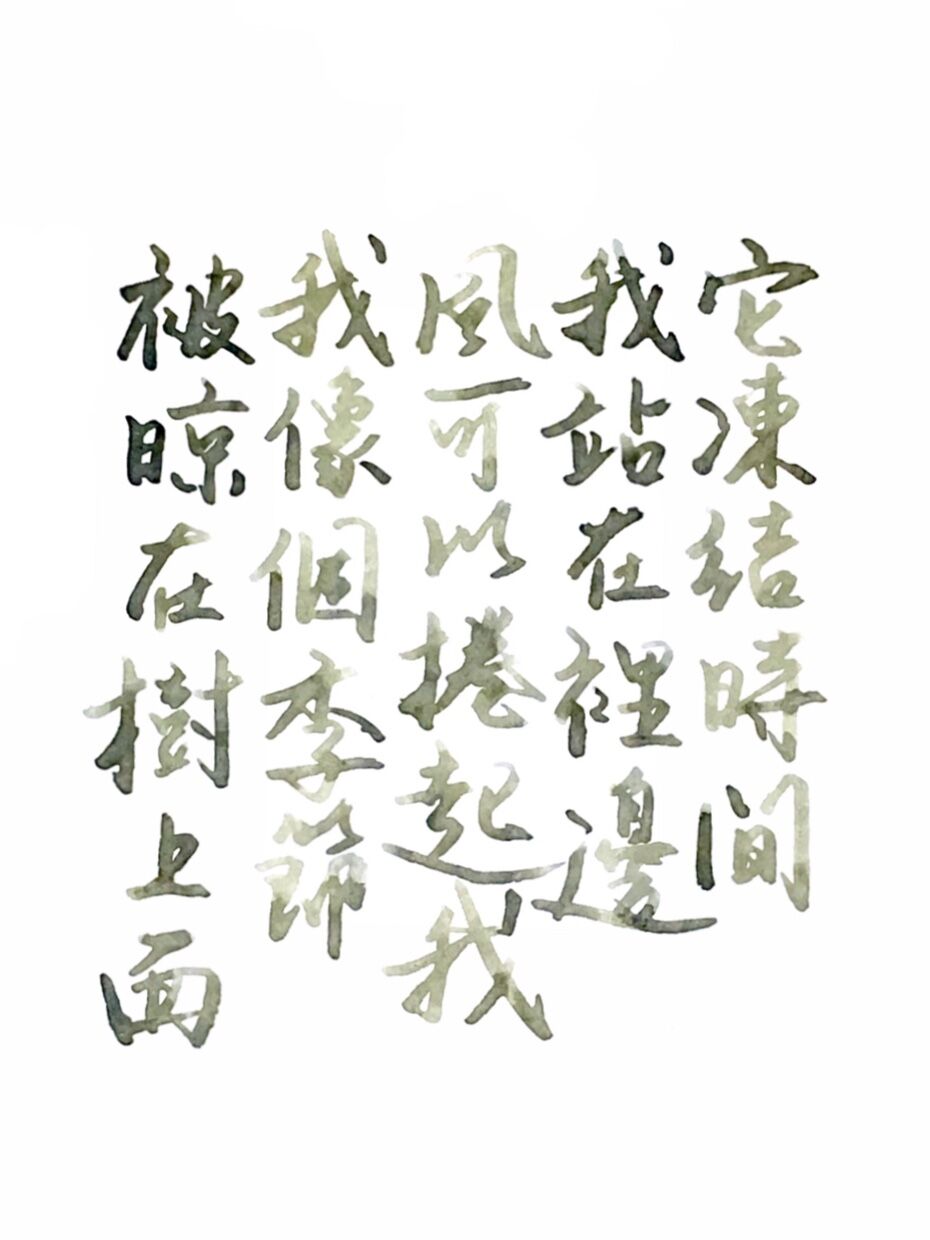 它凍結時間
我站在裡邊
風可以捲起我
我像個季節
被晾在樹上面